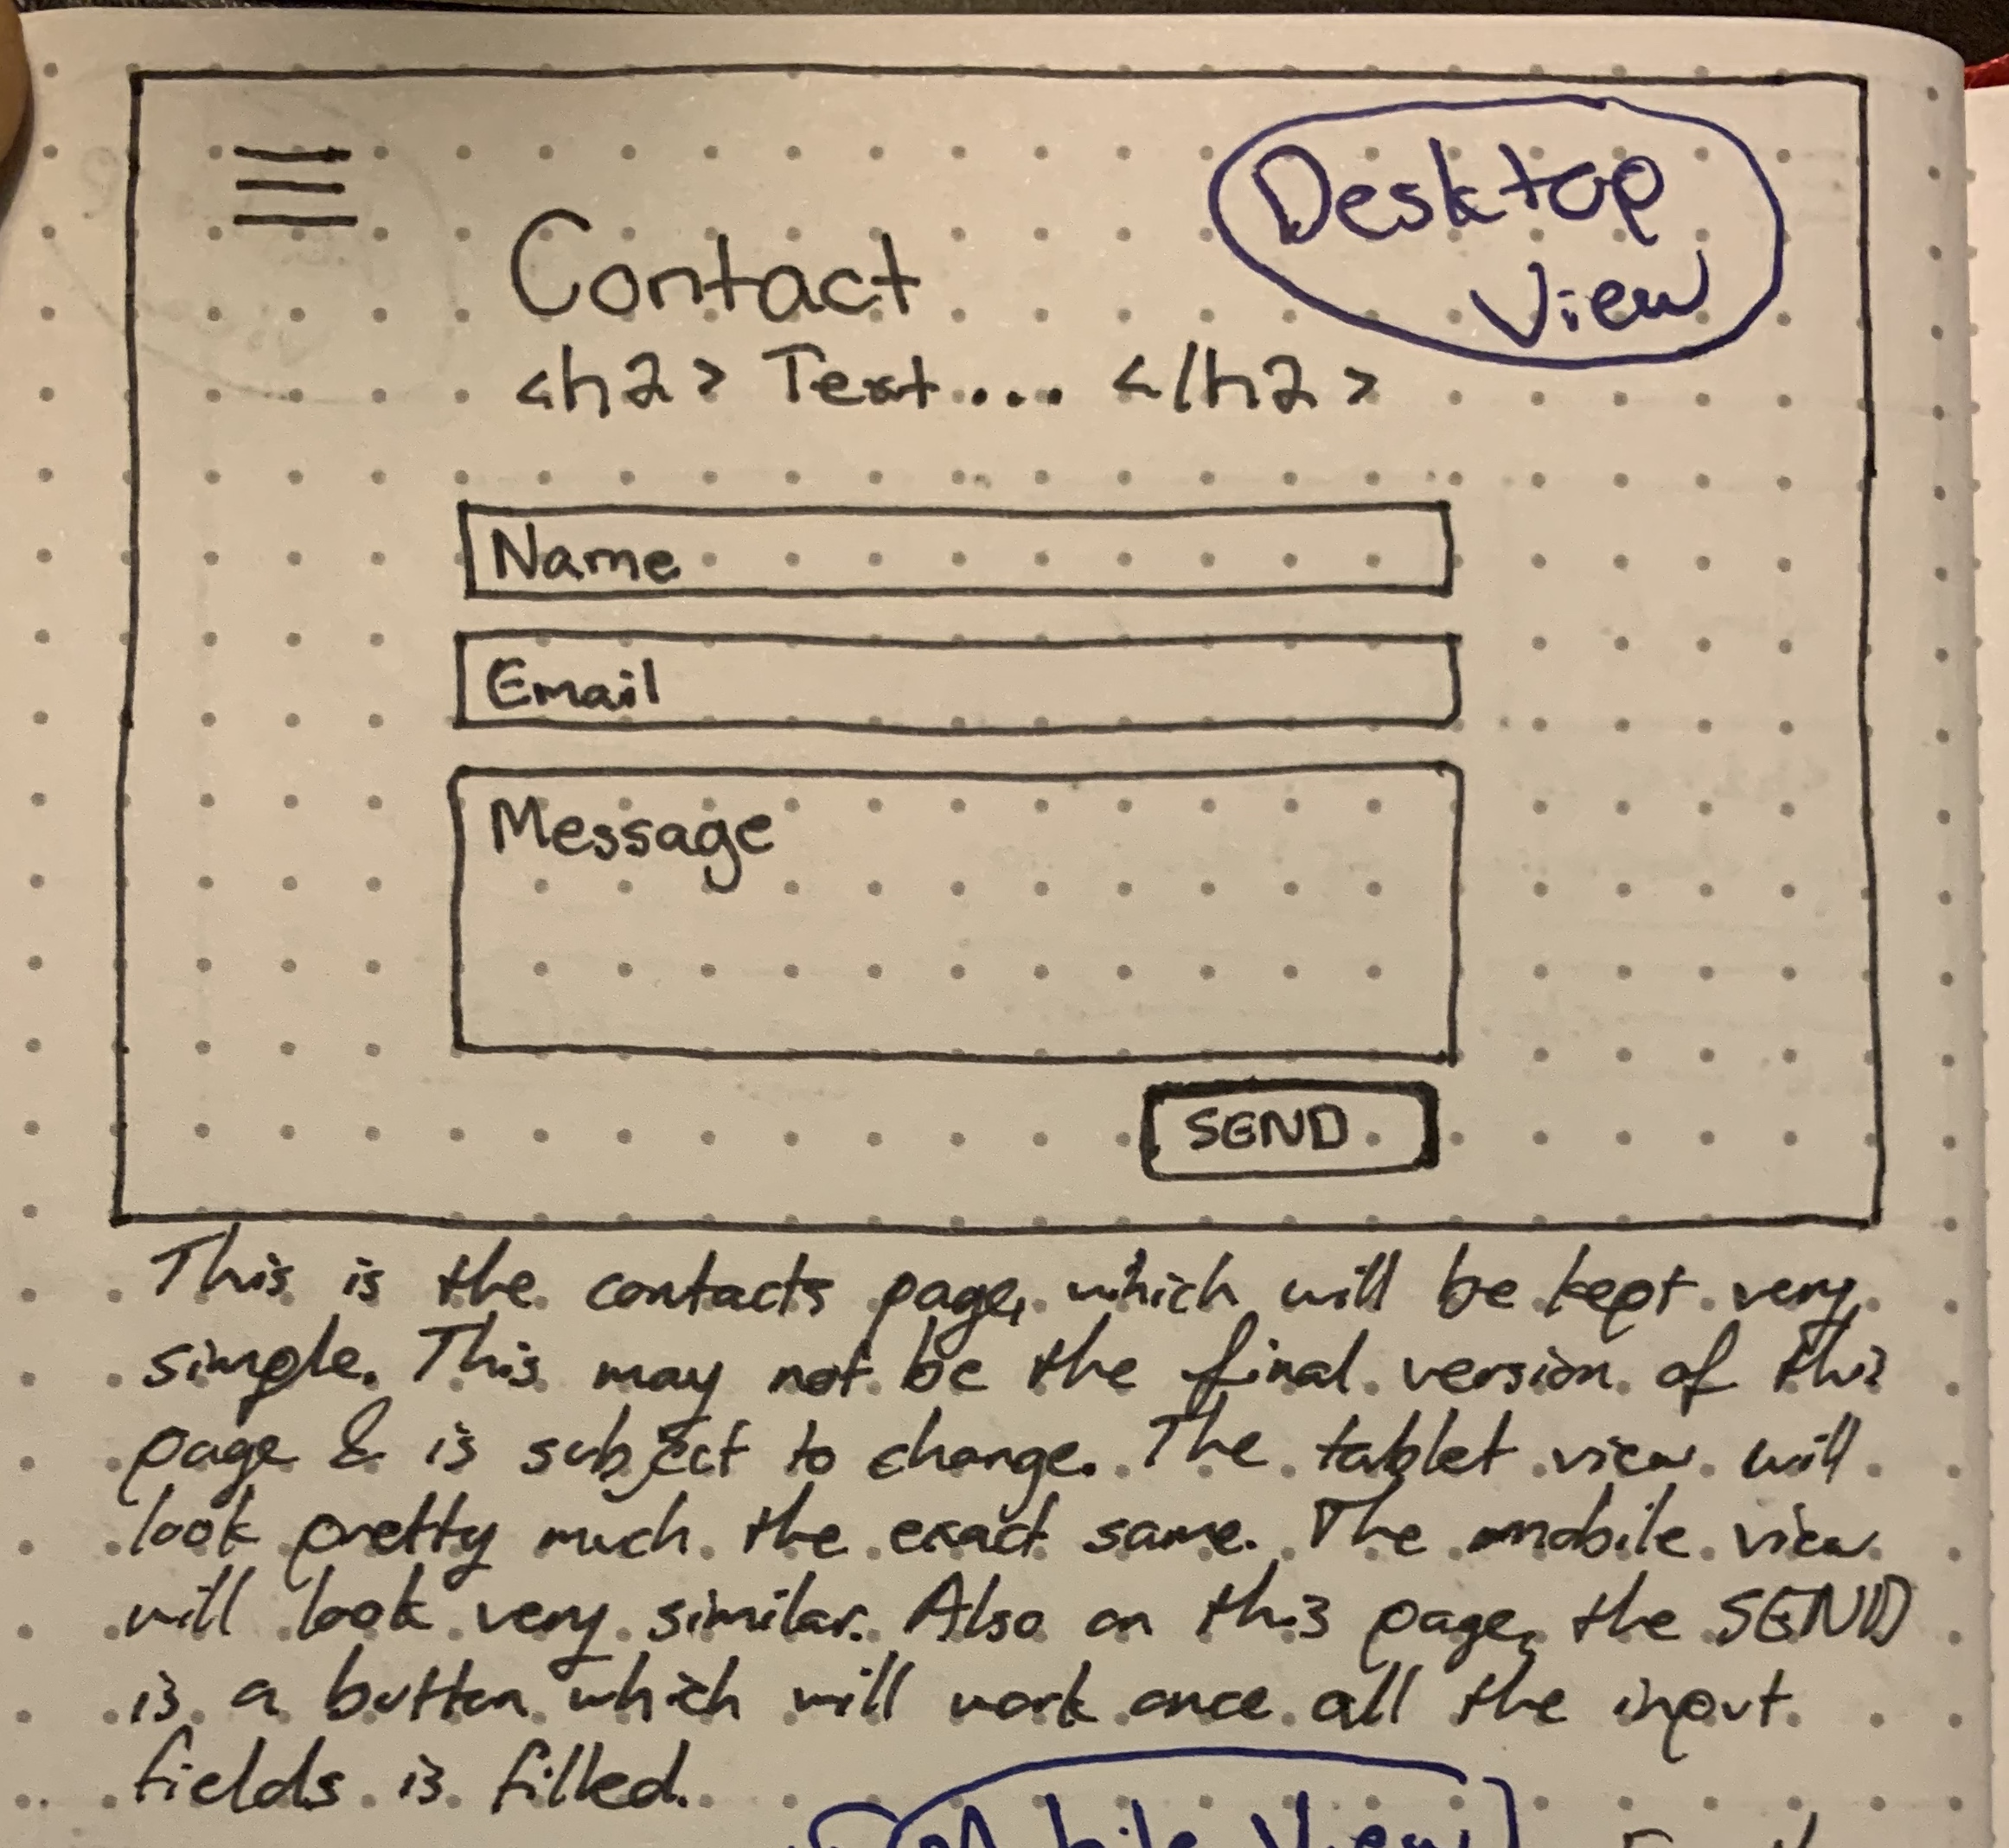 Desktop
View
Contact
<h2> Text.... </h2>
Name
Email
Message
SEND
This is the contacts page, which will be kept very
simple. This may not be the final version of this
page & is subject to change. The tablet view will
look pretty much the exact same. The mobile view
will look very similar. Also on this page, the SEND
is a button which will work once all the input
fields is filled.
Mobile View